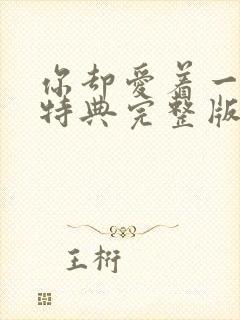 你却爱着一
特典完整版
王桁